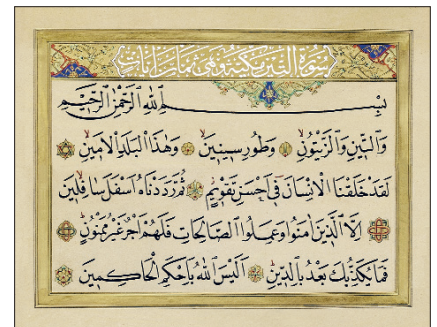 سورة التين مكية وهي ثمان ايات
بِسْمِ اللّٰهِ الرَّحْمٰنِ الرَّحِيمِ
وَالتِّينِ وَالزَّيْتُونِۙ وَطُورِ سِينِينَۙ وَهٰذَا الْبَلَدِ الْاَمِينِۙ
لَقَدْ خَلَقْنَا الْاِنْسَانَ فِٓي اَحْسَنِ تَقْوِيمٍۘ ثُمَّ رَدَدْنَاهُ اَسْفَلَ سَافِلِينَ
اِلَّا الَّذِينَ اٰمَنُوا وَعَمِلُوا الصَّالِحَاتِ فَلَهُمْ اَجْرٌ غَيْرُ مَمْنُونٍۜ
فَمَا يُكَذِّبُكَ بَعْدُ بِالدِّينِۜ اَلَيْسَ اللّٰهُ بِاَحْكَمِ الْحَاكِمِينَ